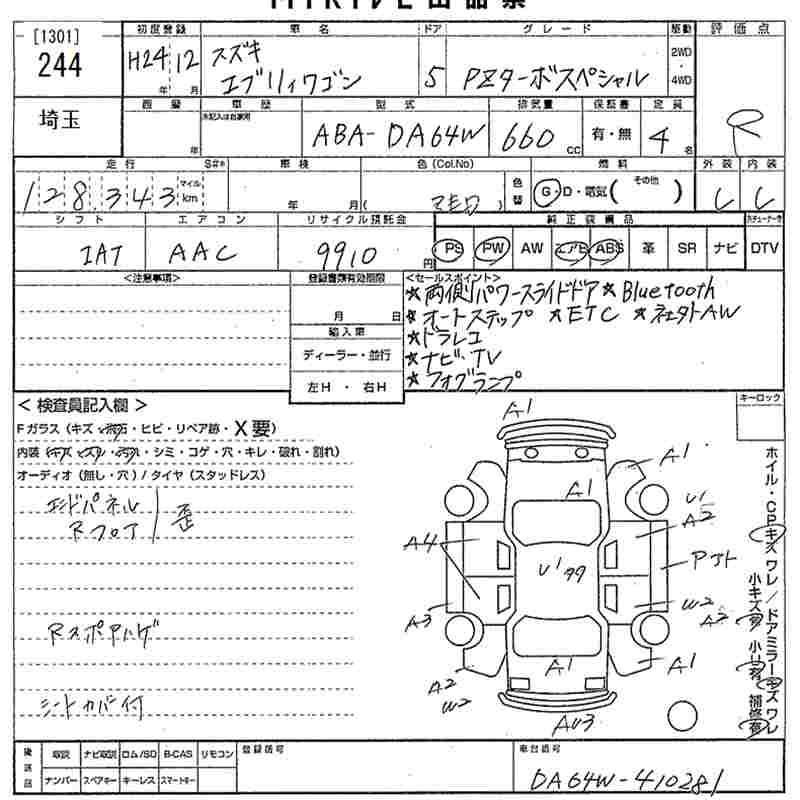 [1301]
244
初度登録 車名 ドア グレード 駆動 評価点
H24 12 スズキ
エブリィワゴン 5 PZターボスペシャル 2WD
4WD
年 月
R
埼玉
車歴 型式 排気量 保証書 定員
未記入は自家用
ABA-DA64W 660 cc 有・無 4 名
年
走行 S#* 車検 色(Col.No) 燃料 外装 内装
128,343 マイル km 年 月 ( ) 色替 G・D・電気( その他 ) C C
シフト エアコン リサイクル預託金 純正装備品
IAT AAC 9910 円 PS PW AW エアB ABS 革 SR ナビ DTV
<注意事項> 登録書類有効期限 <セールスポイント>
★両側パワースライドドア★Bluetooth
月 日 ★オートステップ ★ETC ★社外AW
輸入車 ★ドラレコ
ディーラー・並行 ★ナビ・TV
左H・右H ★フォグランプ
<検査員記入欄> キーロック
Fガラス(キズ・飛石・ヒビ・リペア跡・X要)
内装(キズ・スレ・汚れ・シミ・コゲ・穴・キレ・破れ・割れ)
オーディオ(無し・穴)/タイヤ(スタッドレス)
エンドパネル
Rフロア 歪
Rスポイラハゲ
シートカバー付
A1
A1
A1
U1
A2
A4
U1 99
Pアト
A3
W2
A2
A1
A1
A2
W2
AU3
ホイル・CPキズワレ/ドアミラーキズワレ
小キズ有 小凹有 補修有
後送品 取説 ナビ取説 ロム/SD B-CAS リモコン 登録番号 車台番号
ナンバー スペアキー キーレス スマートキー DA64W-410281